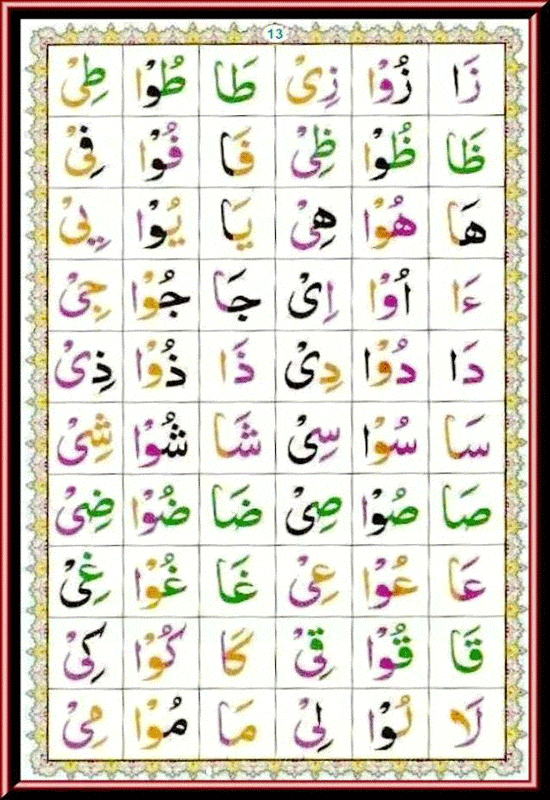 13
زَا زُوْا زِىْ طَا طُوْا طِىْ
ظَا ظُوْا ظِىْ فَا فُوْا فِىْ
هَا هُوْا هِىْ يَا يُوْا يِىْ
ءَا اُوْا اِىْ جَا جُوْا جِىْ
دَا دُوْا دِىْ ذَا ذُوْا ذِىْ
سَا سُوْا سِىْ شَا شُوْا شِىْ
صَا صُوْا صِىْ ضَا ضُوْا ضِىْ
عَا عُوْا عِىْ غَا غُوْا غِىْ
قَا قُوْا قِىْ كَا كُوْا كِىْ
لَا لُوْا لِىْ مَا مُوْا مِىْ